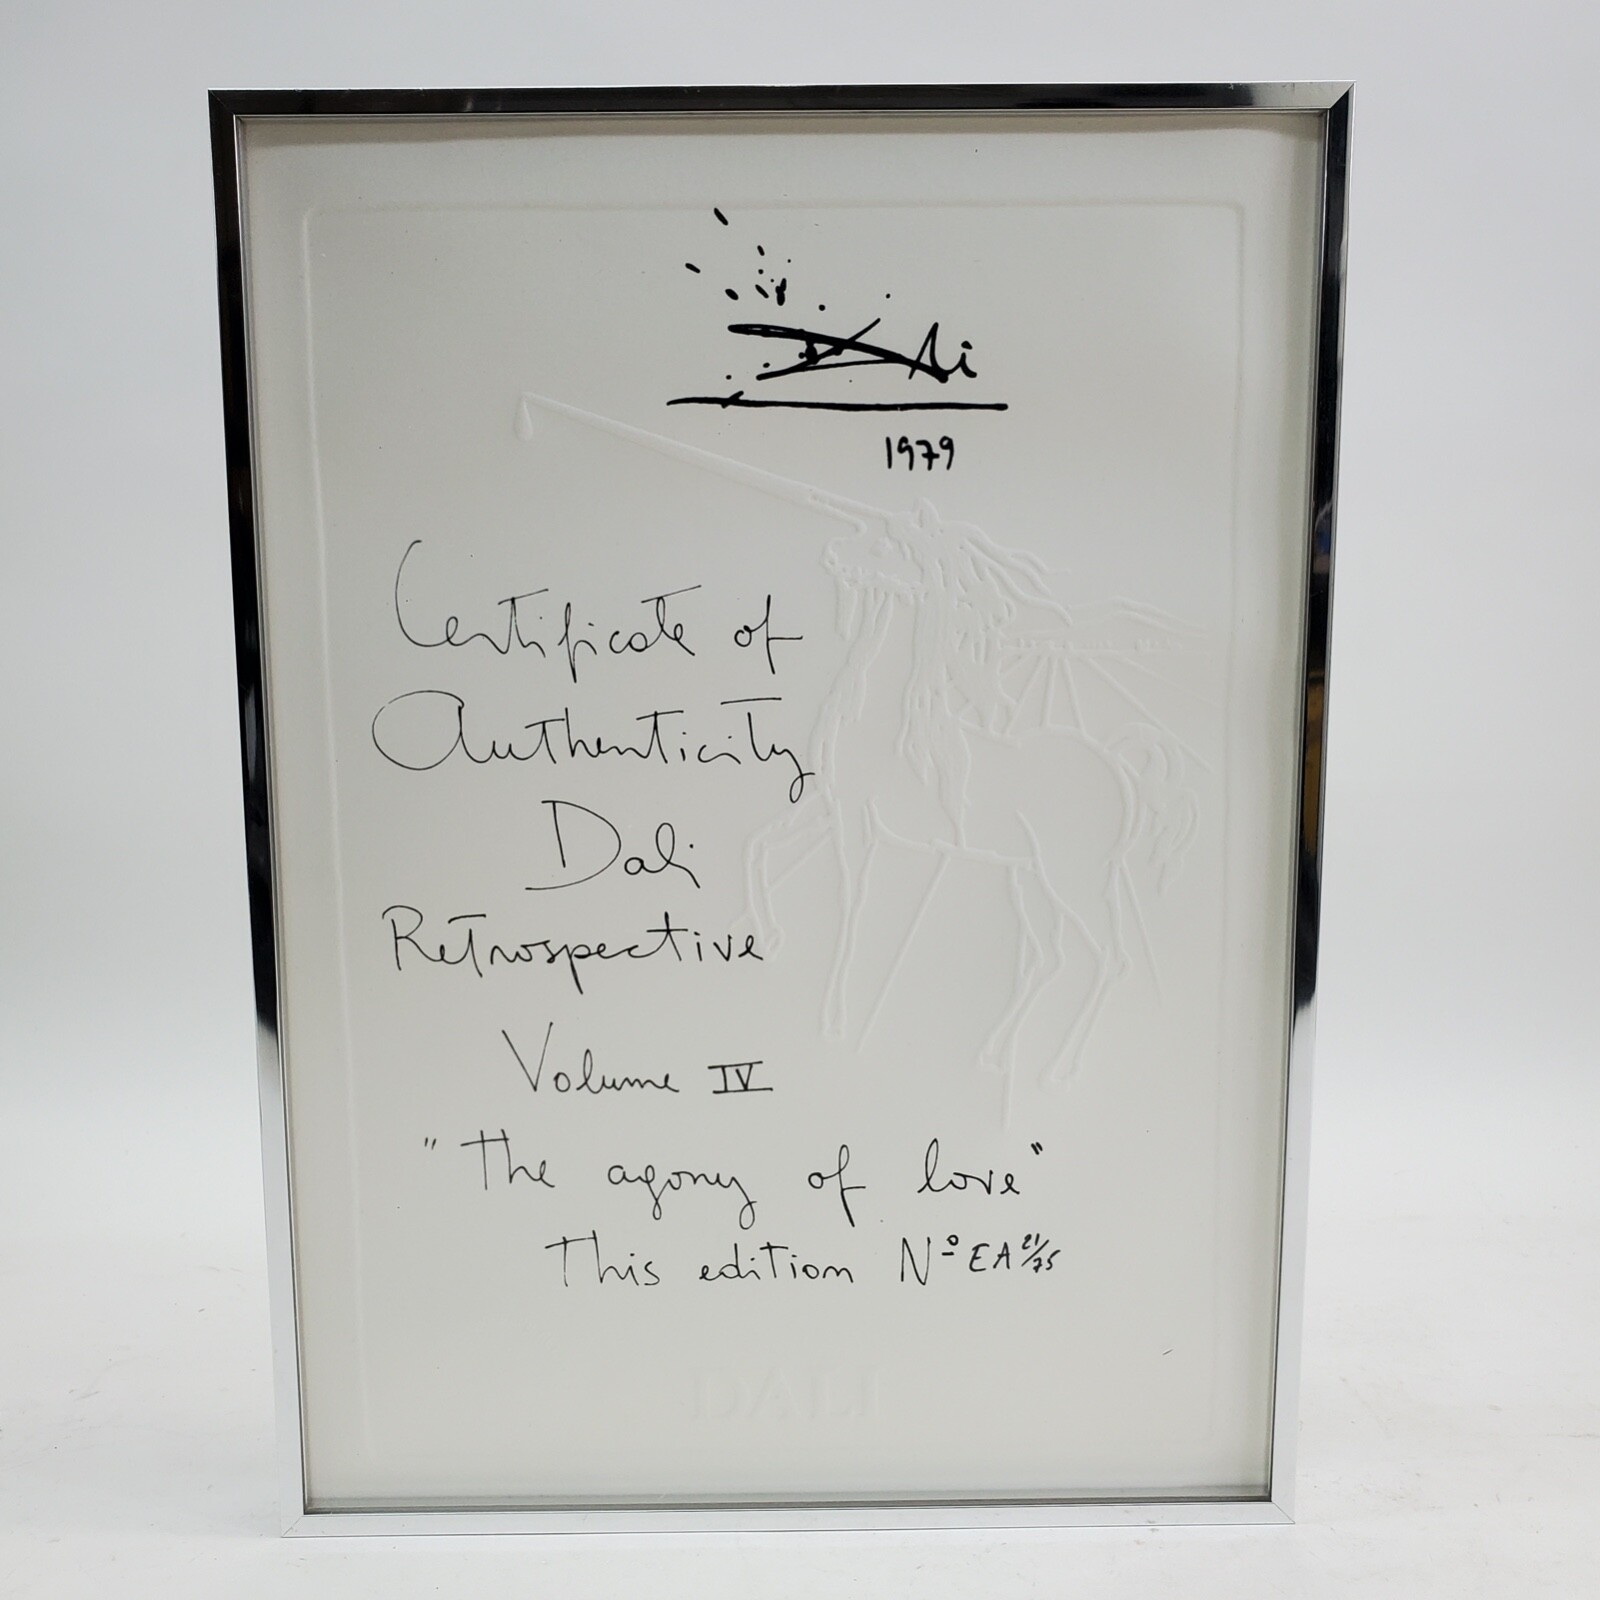 Dali
1979
Certificate of
Authenticity
Dali
Retrospective
Volume IV
"The agony of love"
This edition Nº EA 21/75
DALI